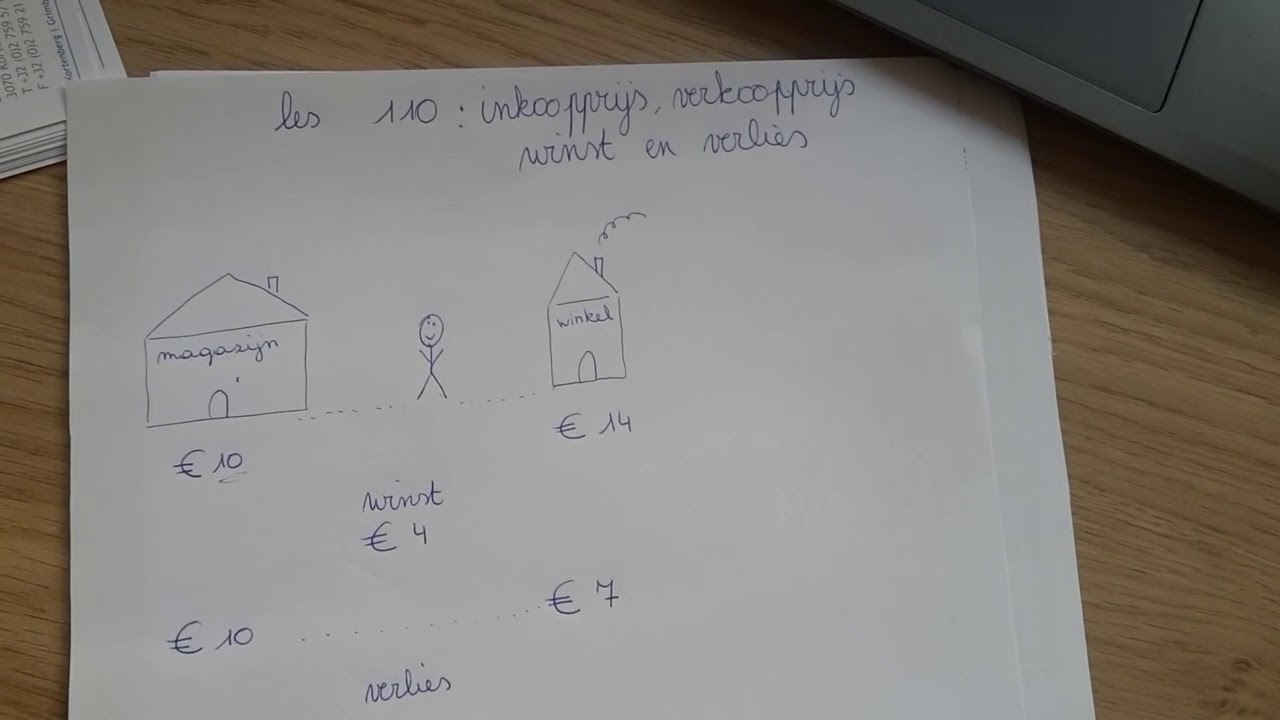 3070 Kor
T +32 (0)2 759 5
F +32 (0)2 759 21
Kortenberg | Grimb
les 110 : inkoopprijs, verkoopprijs
winst en verlies
magazijn
winkel
€ 10
€ 14
winst
€ 4
€ 10
€ 7
verlies